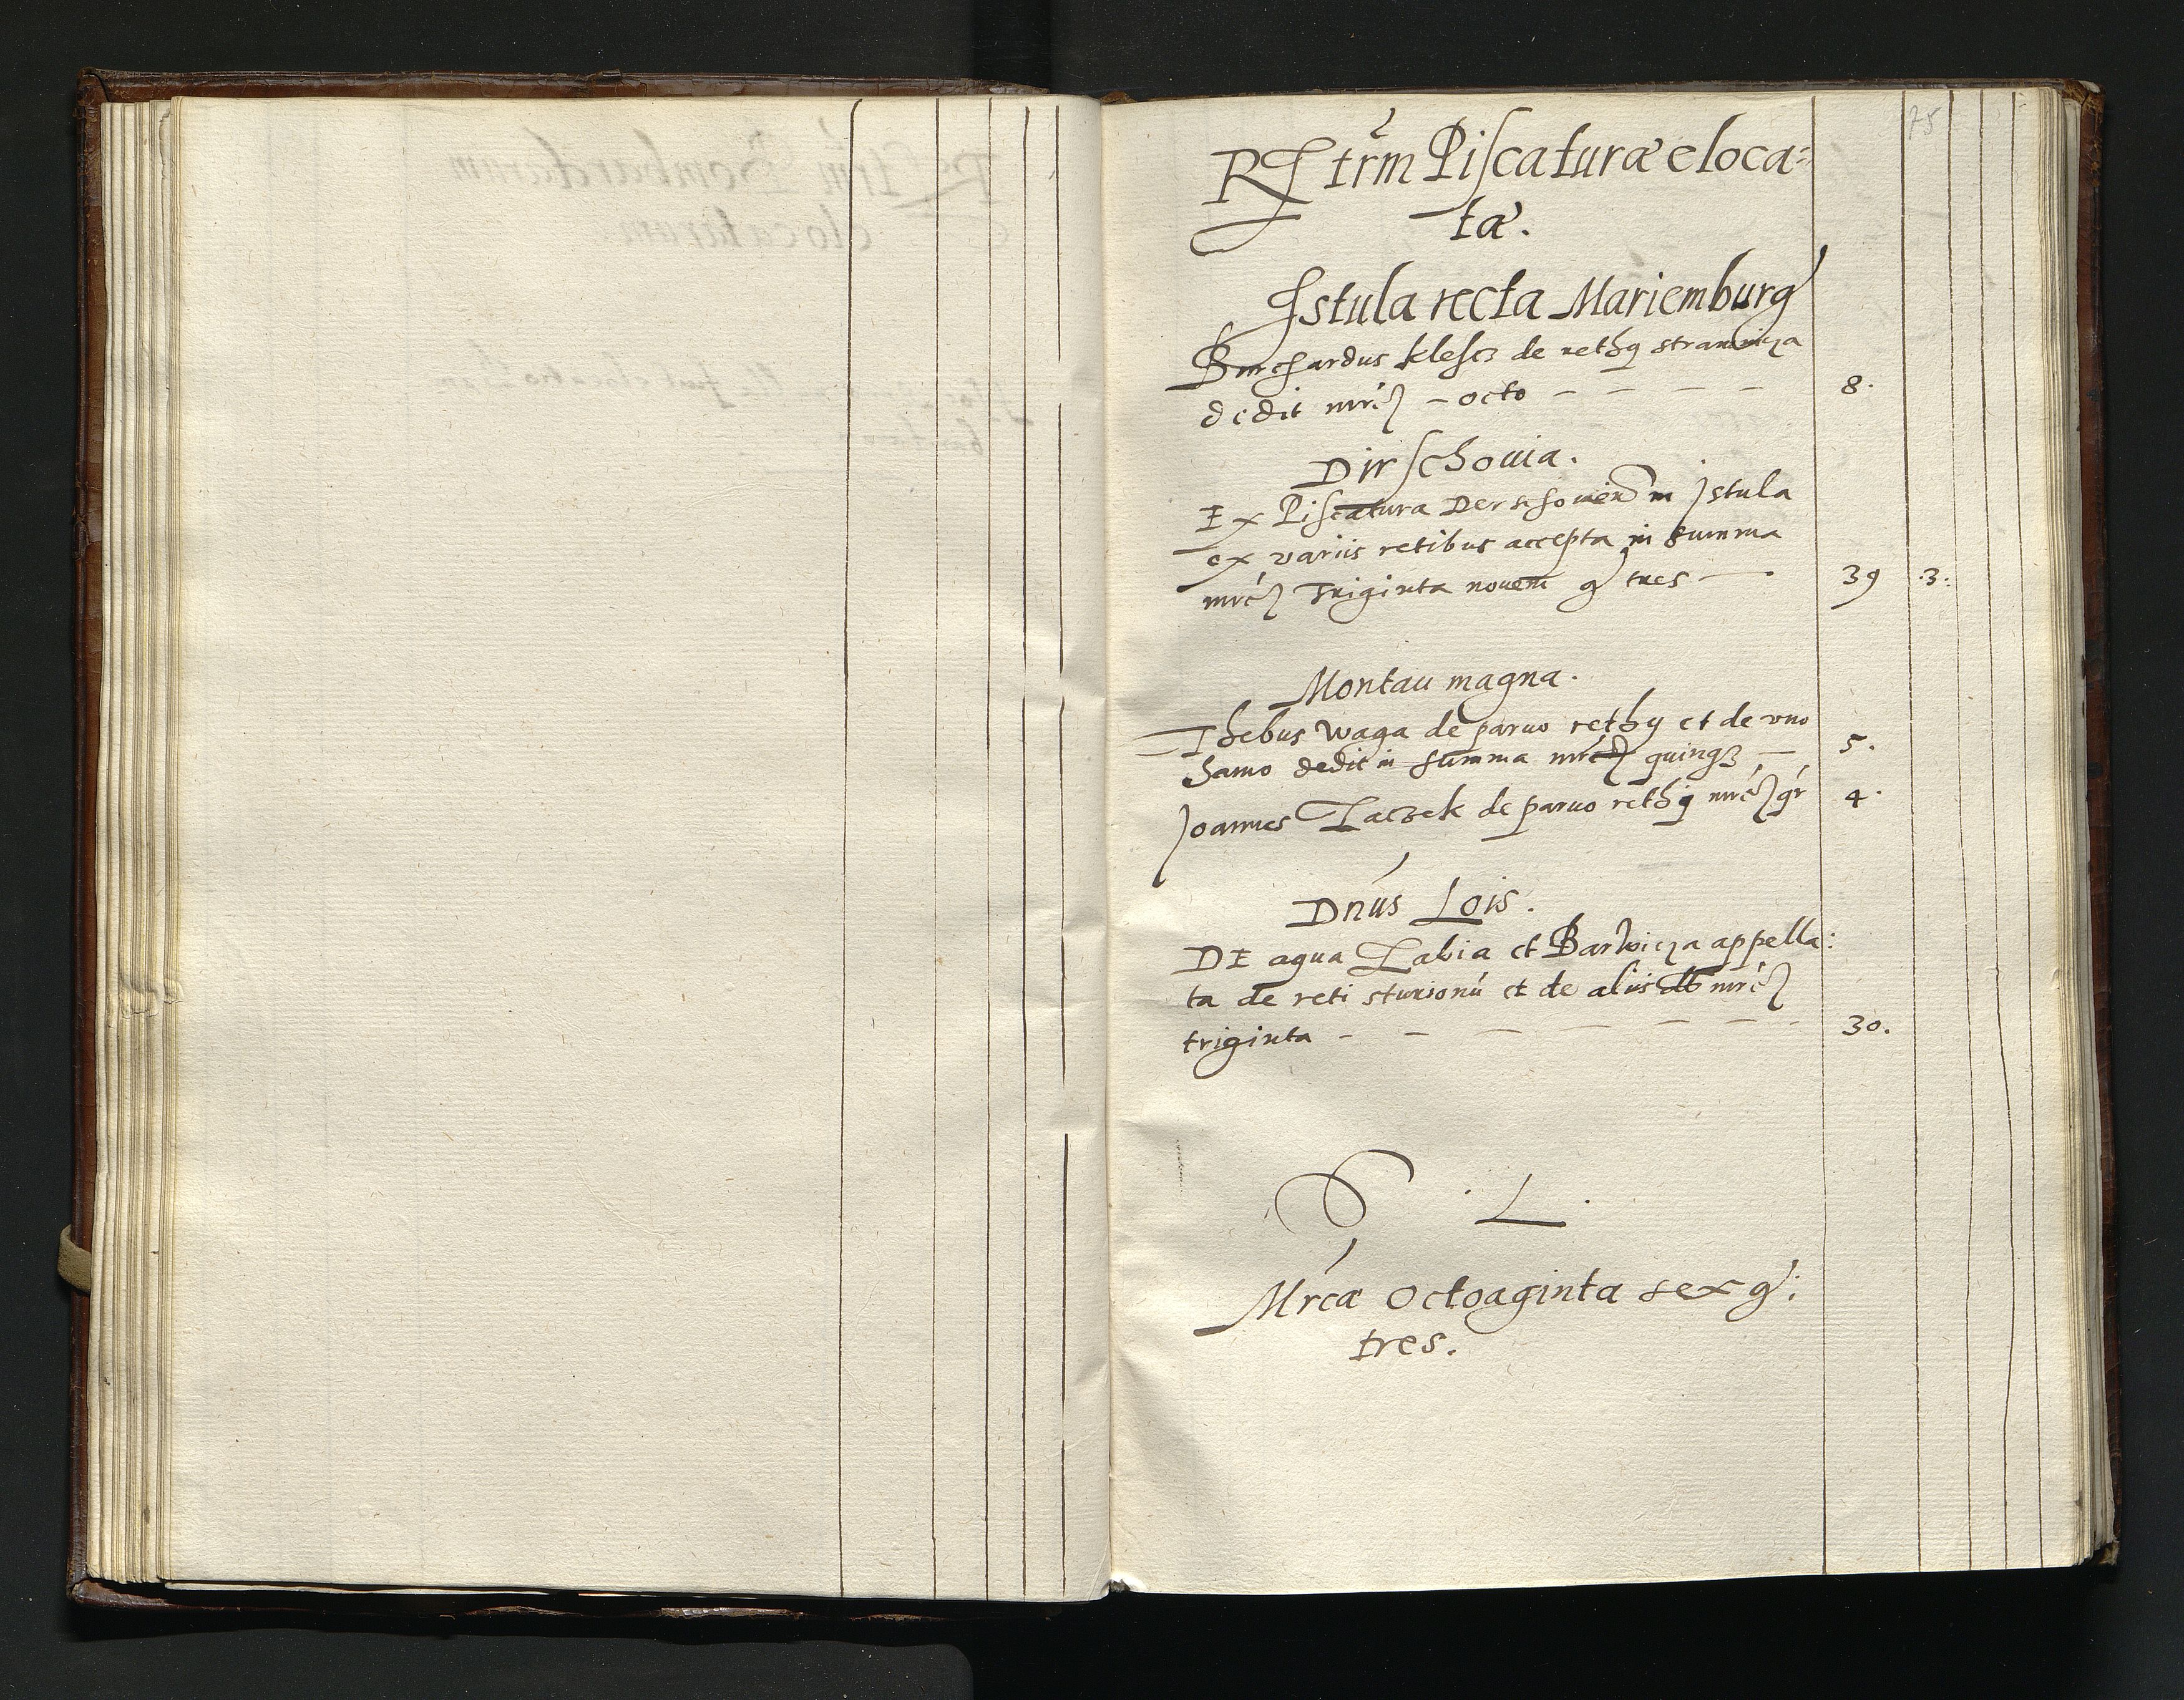 75
Rgtrm Piscaturæ eloca=
tæ.
Istula recta Mariemburg
Burchardus Klescz de rethy stramnicza
dedit mrc – octo – – – – – 8.
Dirschouia.
Ex Piscatura Derschouien in Istula
ex variis retibus accepta in summa
mrc Triginta nouem g tres — 39 .3.
Montau magna.
Thebus Waga de paruo rethy et de vno
hamo dedit in summa mrc quinqz — 5.
Joannes Taczek de paruo rethy mrc gr 4.
Dnus Lois.
DE aqua Tabia et Barwicza appella:
ta de reti sturionu et de aliis mrc
triginta – – – – – – – 30.
. L .
Mrcæ Octoaginta sex g:
tres.